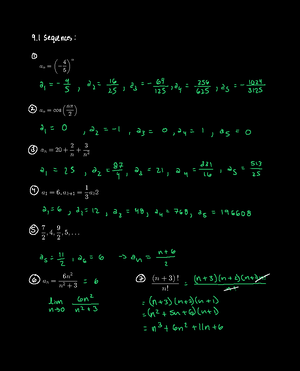 9.1 Sequences:
①
aₙ = (-4/5)ⁿ
a₁ = -4/5 , a₂ = 16/25 , a₃ = -64/125 , a₄ = 256/625 , a₅ = -1024/3125
② aₙ = cos(nπ/2)
a₁ = 0 , a₂ = -1 , a₃ = 0 , a₄ = 1 , a₅ = 0
③ aₙ = 20 + 2/n + 3/n²
a₁ = 25 , a₂ = 87/4 , a₃ = 21 , a₄ = 331/16 , a₅ = 513/25
④ a₁ = 6, aₖ₊₁ = 1/3 aₖ2
a₁ = 6 , a₂ = 12 , a₃ = 48 , a₄ = 768 , a₅ = 196608
⑤ 7/2, 4, 9/2, 5, . . .
a₅ = 11/2 , a₆ = 6 → aₙ = n+6/2
⑥ aₙ = 6n²/n²+3 = 6
lim n→∞ 6n²/n²+3
⑦ (n+3)!/n! = (n+3)(n+2)(n+1)
= (n+3)(n+2)(n+1)
= (n²+5n+6)(n+1)
= n³+6n²+11n+6